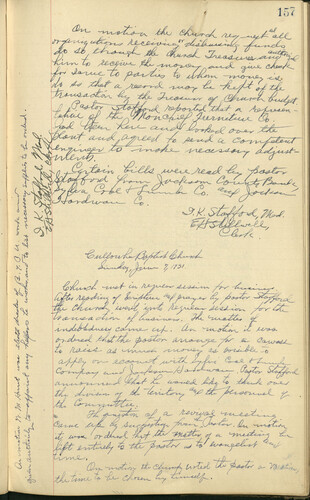 157
On motion the church request all
organizations receiving & dismissing funds
do so through the Church Treasurer and
him to receive the money and give check
for same to parties to whom money is
so that a record may be kept of the
transaction by the Treasurer of Church budget.
Pastor Stafford reported that a represen-
tative of the Moncrief Furnace Co.
had been here and looked over the
plant and agreed to send a competent
engineer to make necessary adjust-
ments.
Certain bills were read by Pastor
Stafford from Jackson County Bank,
Coal & Lumber Co. and Jackson
Hardware Co.
I. K. Stafford, Mod.
Clerk
I. K. Stafford Mod.
Cullowhee Baptist Church
Sunday, June 7, 1931
Church met in regular session for business.
After reading of scripture & prayer by pastor Stafford
the church went into regular session for the
transaction of business. The matter of
indebtedness came up. On motion it was
ordered that the pastor arrange for a canvass
to raise as much money as possible to
apply on account with Coal & Lumber
Company and Jackson Hardware. Pastor Stafford
announced that he would like to think over
the division of the territory and the personnel of
the Committee.
The question of a revival meeting
came up by suggestion from Pastor. On motion
it was ordered that the matter of a meeting be
left entirely to the pastor as to evangelist and
time.
On motion the church voted the pastor a
the time to be chosen by himself.